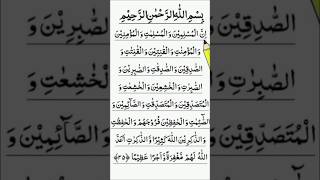 بِسْمِ اللهِ الرَّحْمٰنِ الرَّحِيْمِ
اِنَّ الْمُسْلِمِيْنَ وَالْمُسْلِمٰتِ وَالْمُؤْمِنِيْنَ
وَالْمُؤْمِنٰتِ وَالْقٰنِتِيْنَ وَالْقٰنِتٰتِ وَ
الصّٰدِقِيْنَ وَالصّٰدِقٰتِ وَالصّٰبِرِيْنَ وَ
الصّٰبِرٰتِ وَالْخٰشِعِيْنَ وَالْخٰشِعٰتِ وَ
الْمُتَصَدِّقِيْنَ وَالْمُتَصَدِّقٰتِ وَالصَّآئِمِيْنَ وَ
الصّٰٓئِمٰتِ وَالْحٰفِظِيْنَ فُرُوْجَهُمْ وَالْحٰفِظٰتِ
وَالذّٰكِرِيْنَ اللهَ كَثِيْرًا وَّالذّٰكِرٰتِ اَعَدَّ
اللهُ لَهُمْ مَّغْفِرَةً وَّاَجْرًا عَظِيْمًا ﴿٣٥﴾